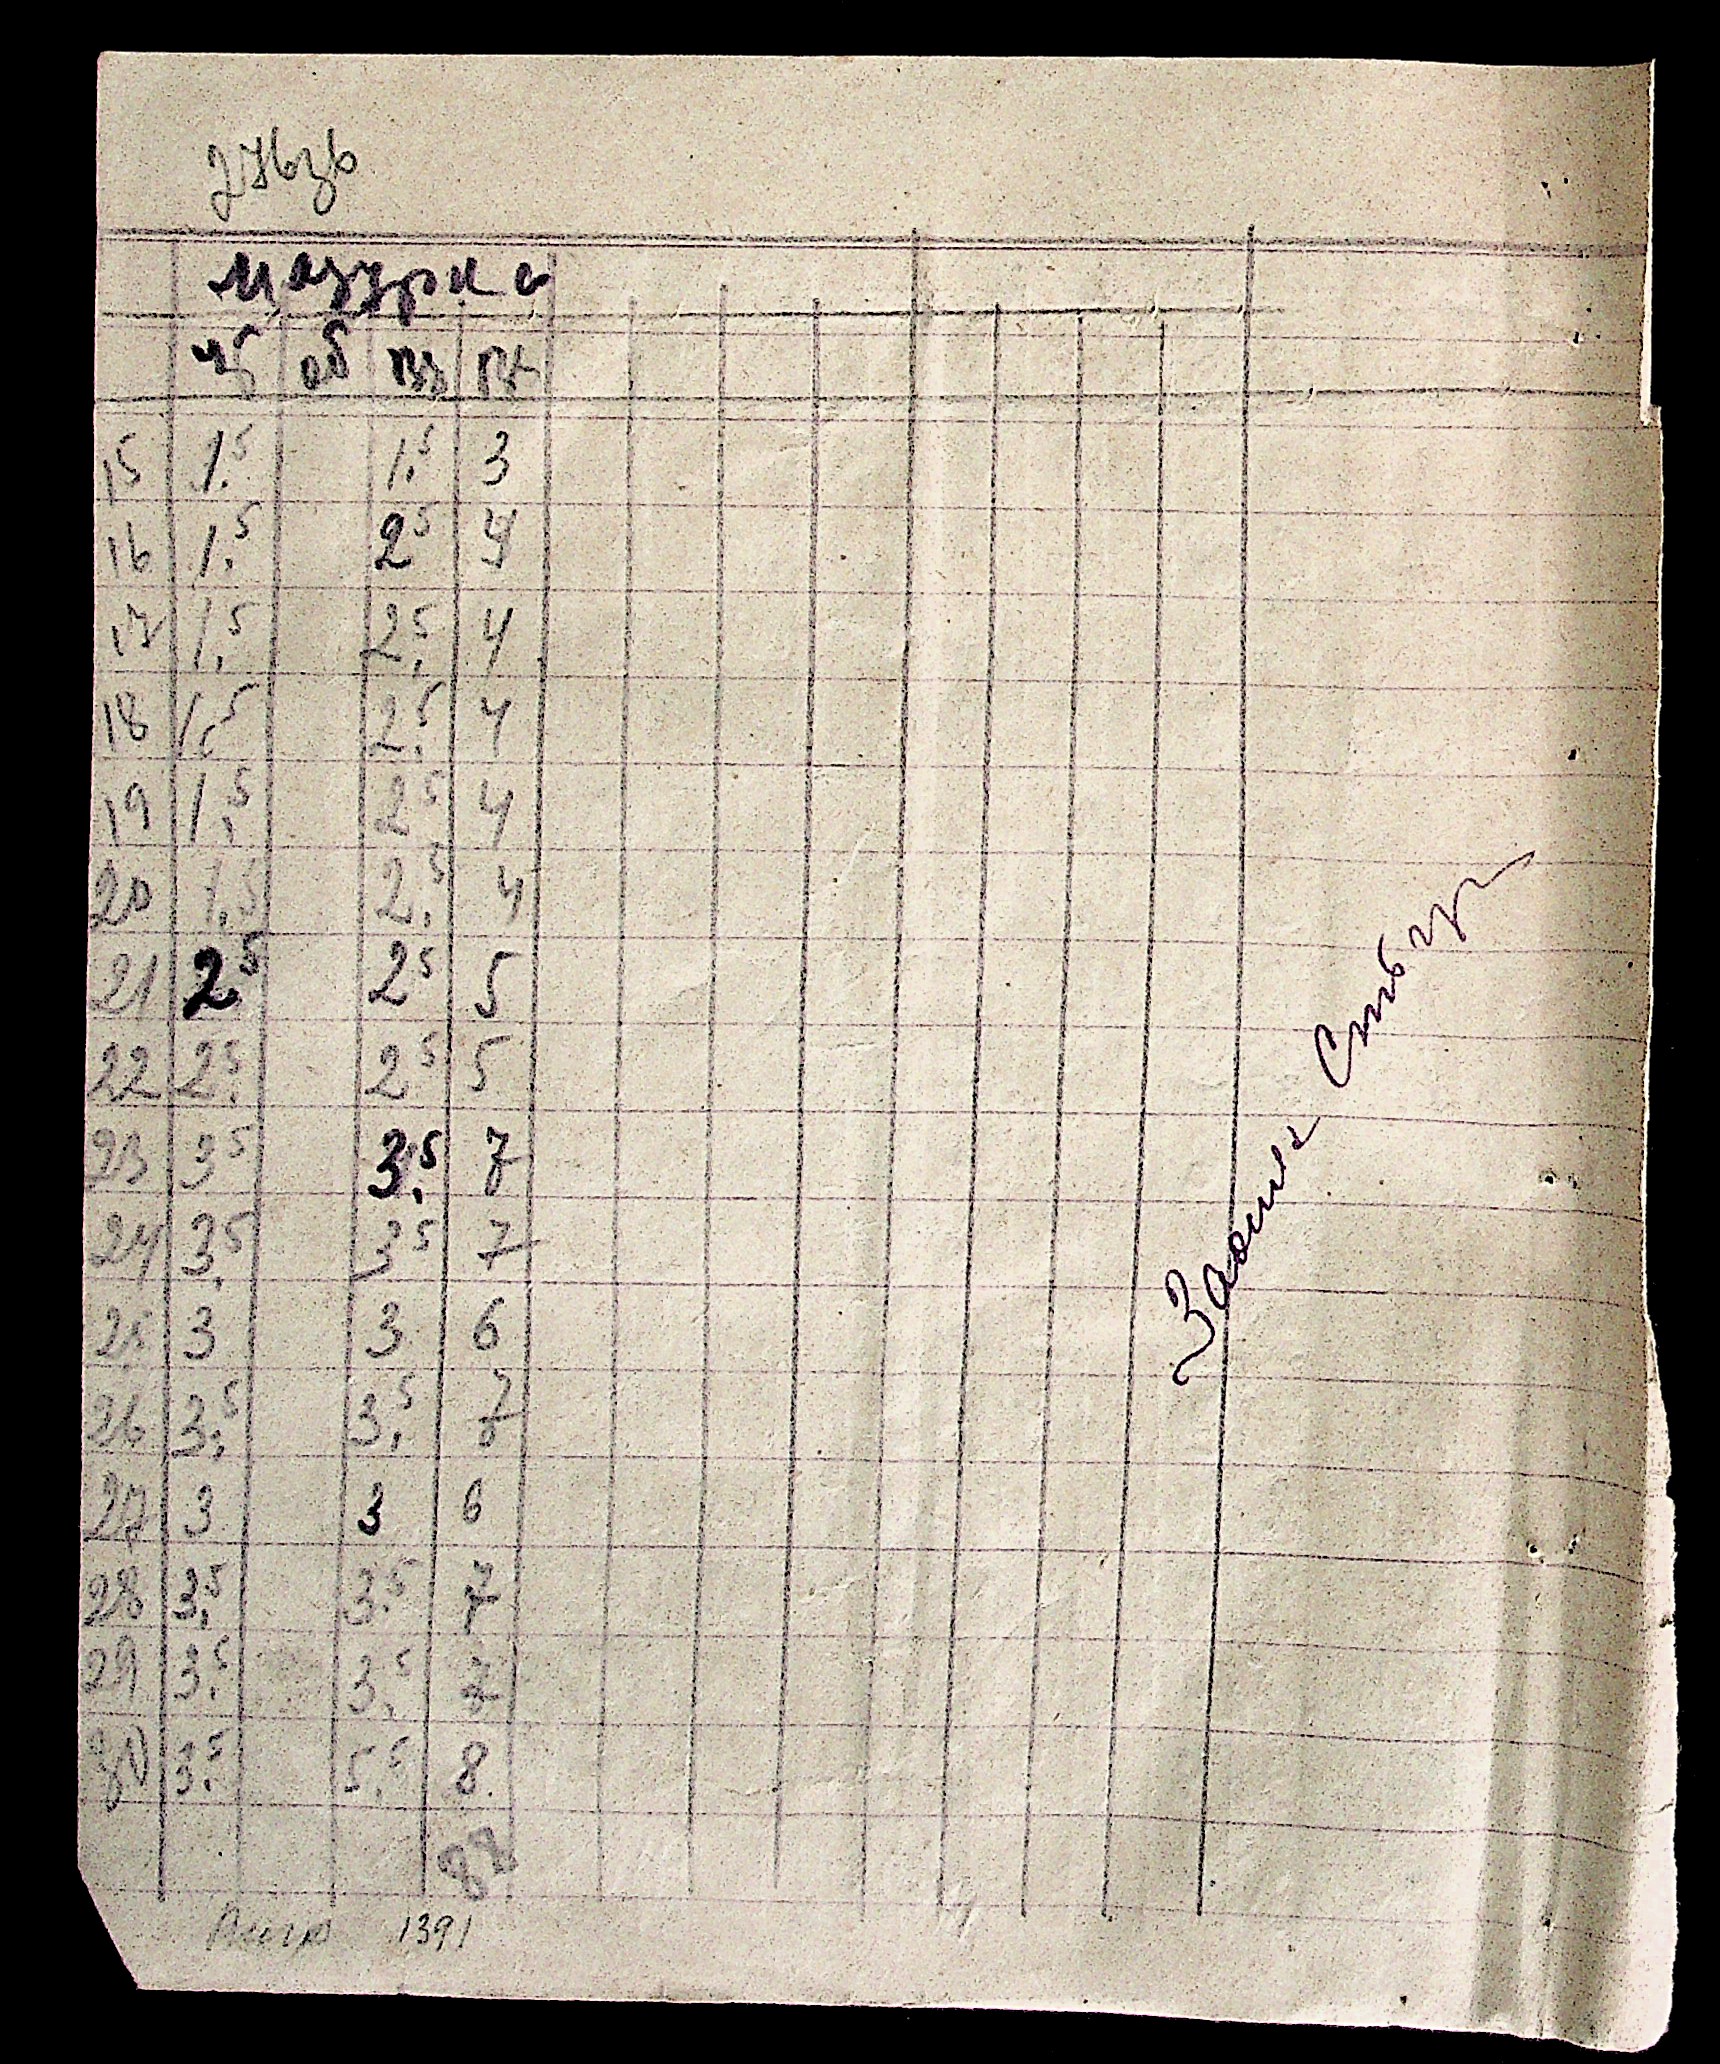 Мазурка
15 1.5 1.5 3
16 1.5 2.5 4
17 1.5 2.5 4
18 1.5 2.5 4
19 1.5 2.5 4
20 1.5 2.5 4
21 2.5 2.5 5
22 2.5 2.5 5
23 3.5 3.5 7
24 3.5 3.5 7
25 3 3 6
26 3.5 3.5 7
27 3 3 6
28 3.5 3.5 7
29 3.5 3.5 7
30 3.5 5.5 8
Всего 1391